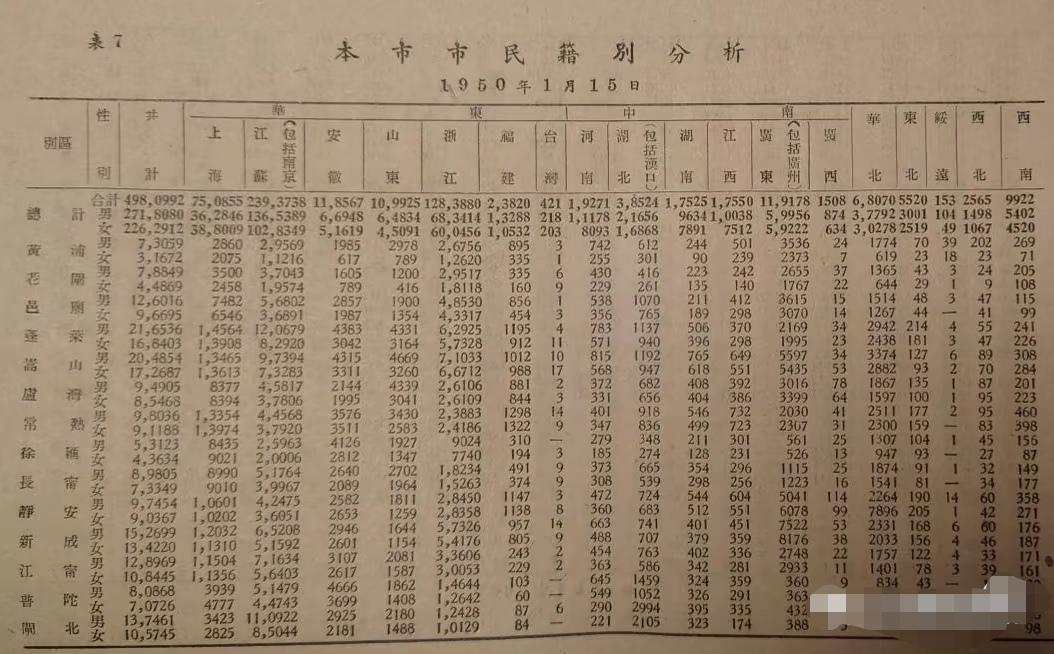 表 7
本市市民籍別分析
1950年1月15日
區別 性別 共計 華東 中南 華北 東北 綏遠 西北 西南
上海 江蘇(包括南京) 安徽 山東 浙江 福建 台灣 河南 湖北(包括漢口) 湖南 江西 廣東(包括廣州) 廣西
總計 合計 498,0992 75,0855 239,3738 11,8567 10,9925 128,3880 2,3820 421 1,9271 3,8524 1,7525 1,7550 11,9178 1508 6,8070 5520 153 2565 9922
男 271,8080 36,2846 136,5389 6,6948 6,4834 68,3414 1,3288 218 1,1178 2,1656 9634 1,0038 5,9956 874 3,7792 3001 104 1498 5402
女 226,2912 38,8009 102,8349 5,1619 4,5091 60,0456 1,0532 203 8093 1,6868 7891 7512 5,9222 634 3,0278 2519 49 1067 4520
黃浦 男 7,3059 2860 2,9569 1985 2978 2,6756 895 3 742 612 244 501 3536 24 1774 70 39 202 269
女 3,1672 2075 1,1216 617 789 1,2620 335 1 255 301 90 239 2373 7 619 23 18 23 71
老閘 男 7,8849 3500 3,7043 1605 1200 2,9517 335 6 430 416 223 242 2655 37 1365 43 3 24 205
女 4,4869 2458 1,9574 789 416 1,8118 160 9 229 261 135 140 1767 22 644 29 1 9 108
邑廟 男 12,6016 7482 5,6802 2857 1900 4,8530 856 1 538 1070 211 412 3615 15 1514 48 3 47 115
女 9,6695 6546 3,6891 1987 1354 4,3317 454 3 356 765 189 298 3070 14 1267 44 — 41 99
蓬萊 男 21,6536 1,4564 12,0679 4383 4331 6,2925 1195 4 783 1137 506 370 2169 34 2942 214 4 55 241
女 16,8403 1,3908 8,2920 3042 3164 5,7328 912 11 571 940 396 298 1995 23 2438 181 3 47 226
嵩山 男 20,4854 1,3465 9,7394 4315 4669 7,1033 1012 10 815 1192 765 649 5597 34 3374 127 6 89 308
女 17,2687 1,3613 7,3283 3311 3260 6,6712 988 17 568 947 618 551 5435 53 2882 93 2 70 284
盧灣 男 9,4905 8377 4,5817 2144 4339 2,6106 881 2 372 682 408 392 3016 78 1867 135 1 87 201
女 8,5468 8394 3,7806 1995 3041 2,6109 844 3 331 656 404 386 3399 64 1597 100 1 95 223
常熟 男 9,8036 1,3354 4,4568 3576 3430 2,3883 1298 14 401 918 546 732 2030 41 2511 177 2 95 460
女 9,1188 1,3974 3,7920 3511 2583 2,4186 1322 9 347 836 499 723 2307 31 2300 159 — 83 398
徐匯 男 5,3123 8435 2,5963 4126 1927 9024 310 — 279 348 211 301 561 25 1307 104 1 45 156
女 4,3634 9021 2,0006 2812 1347 7740 194 3 185 274 128 231 526 13 947 93 — 27 87
長甯 男 8,9805 8990 5,1764 2640 2702 1,8234 491 9 373 665 354 296 1115 25 1874 91 1 32 149
女 7,3349 9010 3,9967 2089 1964 1,5263 374 9 308 539 298 256 1223 16 1541 81 — 34 177
靜安 男 9,7454 1,0601 4,2475 2582 1811 2,8450 1147 3 472 724 544 604 5041 114 2264 190 14 60 358
女 9,0367 1,0202 3,6051 2653 1259 2,8358 1138 8 360 683 512 551 6078 99 7896 205 1 42 271
新成 男 15,2699 1,2032 6,5208 2946 1644 5,7326 957 14 663 741 401 451 7522 53 2331 168 6 60 176
女 13,4220 1,1310 5,1592 2601 1154 5,4176 805 9 488 707 379 359 8176 38 2033 156 4 46 187
江甯 男 12,8969 1,1504 7,1634 3107 2081 3,3606 243 2 454 763 402 336 2748 22 1757 122 4 33 171
女 10,8445 1,1356 5,6403 2617 1587 3,0053 229 2 363 586 342 281 2933 11 1401 78 3 39 161
普陀 男 8,0868 3939 5,1479 4666 1862 1,4644 103 — 645 1459 324 359 360 9 834 43 —
女 7,0726 4777 4,4743 3699 1408 1,2642 60 — 549 1052 326 291 363
閘北 男 13,7461 3423 11,0922 2925 2180 1,2428 87 6 290 2994 395 335 432
女 10,5745 2825 8,5044 2181 1488 1,0129 84 — 221 2105 323 174 388 98